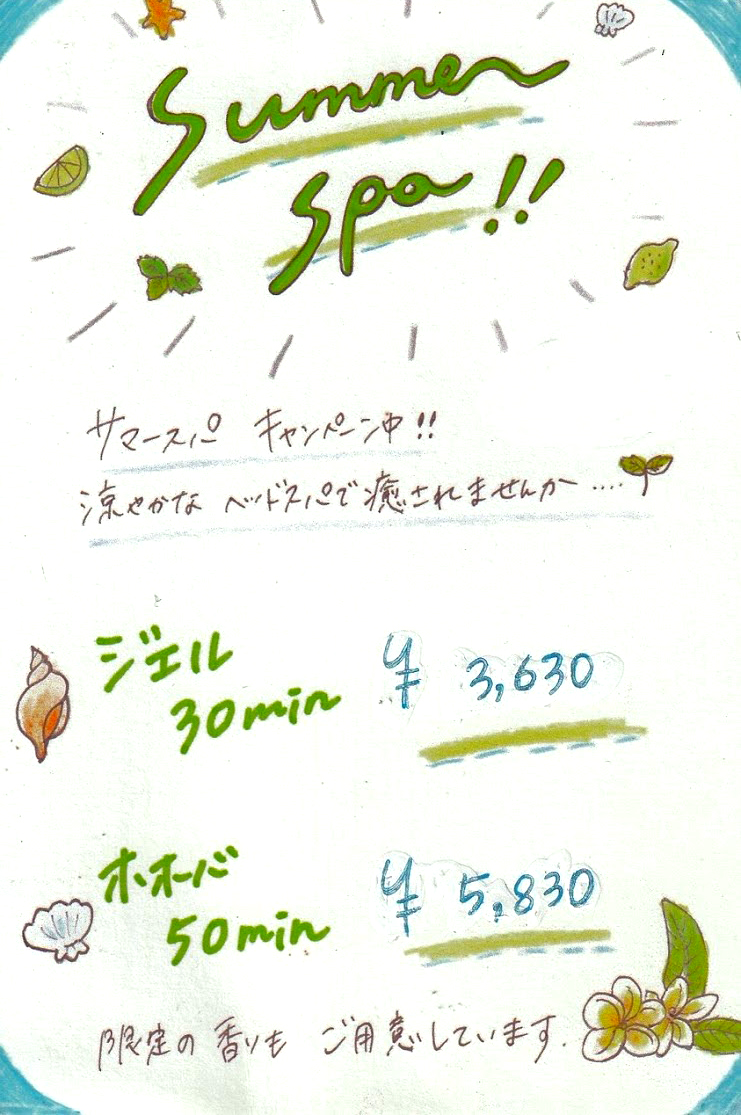 Summer
Spa!!
サマースパ キャンペーン中!!
涼やかな ヘッドスパで癒されませんか....
ジェル
30min ¥ 3,630
ホホバ
50min ¥ 5,830
限定の香りも ご用意しています.